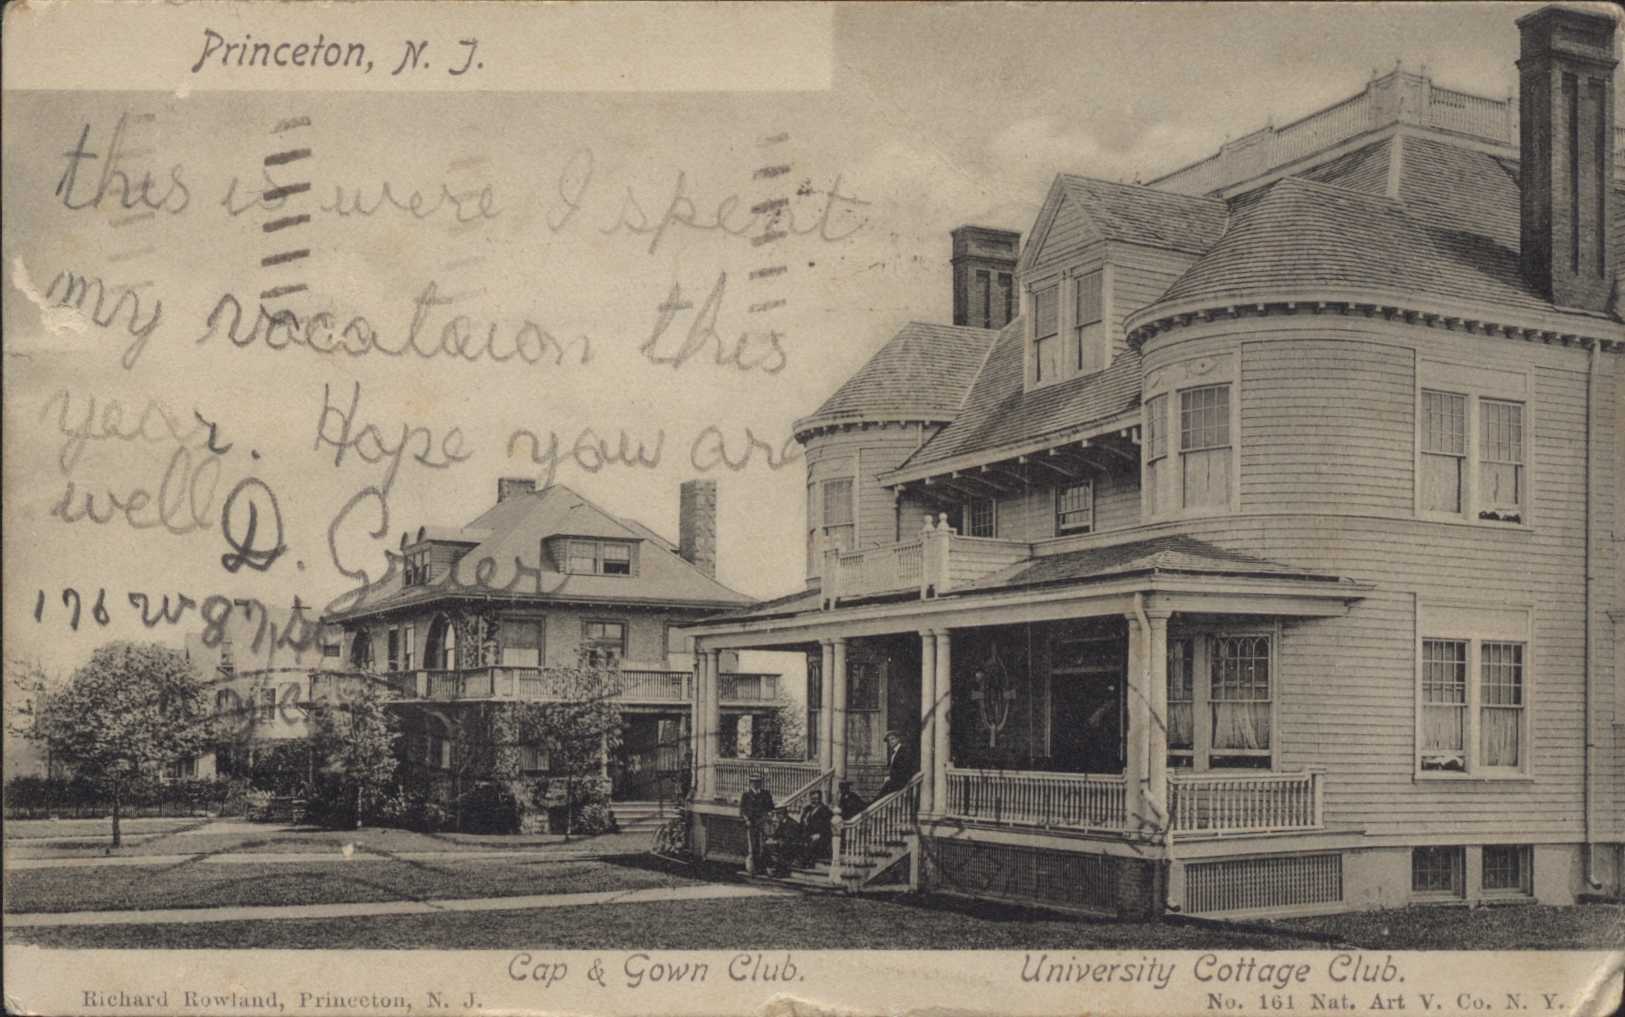 Princeton, N. J.
this is were I spent
my vacataion this
year. Hope you are
well D. Grier
176 W 87 st
Cap & Gown Club.
University Cottage Club.
Richard Rowland, Princeton, N. J.
No. 161 Nat. Art V. Co. N. Y.